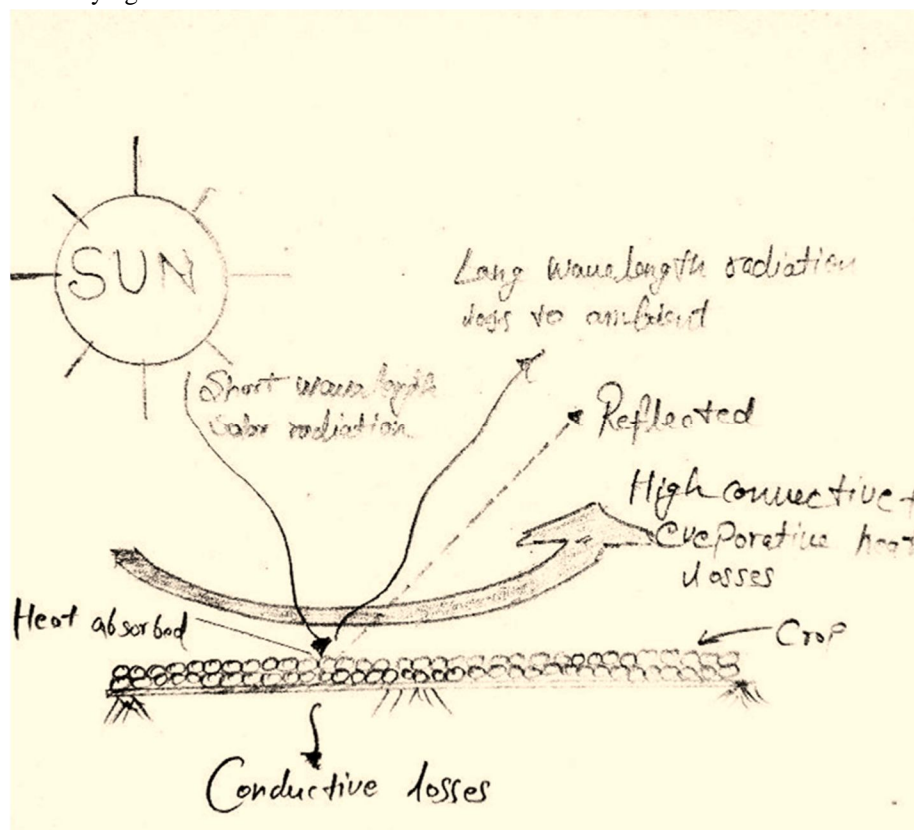 SUN
Long wavelength radiation
loss to ambient
Short wavelength
solar radiation
Reflected
High convective +
Evaporative heat
losses
Heat absorbed
Crop
Conductive losses